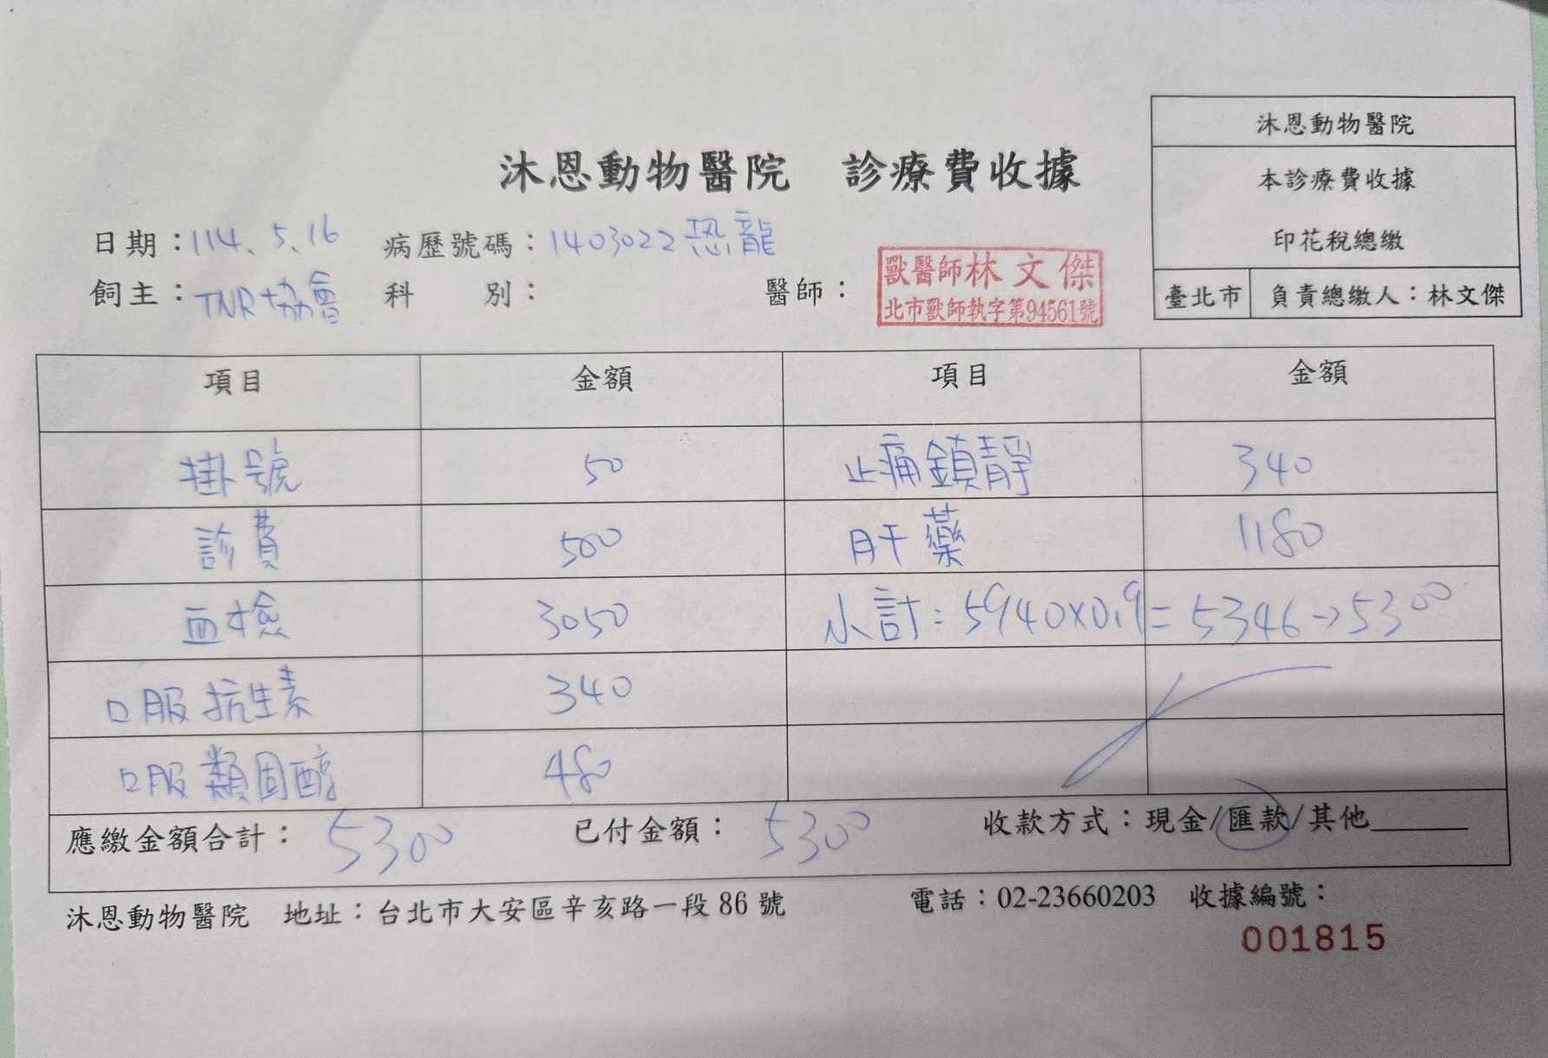 沐恩動物醫院
本診療費收據
印花稅總繳
臺北市 負責總繳人：林文傑
沐恩動物醫院 診療費收據
日期：114、5、16 病歷號碼：1403022 恐龍
飼主：TNR協會 科 別： 醫師：
獸醫師林文傑
北市獸師執字第94561號
項目 金額 項目 金額
掛號 50 止痛鎮靜 340
診費 500 肝藥 1180
血檢 3050 小計：5940x0.9=5346→5300
口服抗生素 340
口服類固醇 480
應繳金額合計：5300 已付金額：5300 收款方式：現金/匯款/其他______
沐恩動物醫院 地址：台北市大安區辛亥路一段86號 電話：02-23660203 收據編號：
001815